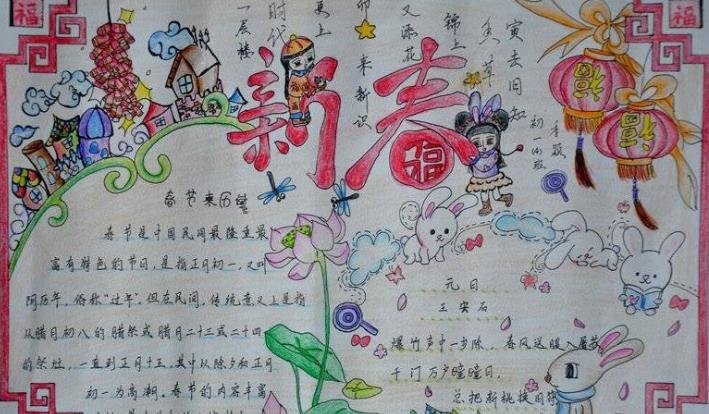 福
福
寅去旧知
锦上
又添花
卯
来新识
更上
时代
一层楼
新春
福
福
福
初一(4)班
春节来历
春节是中国民间最隆重最
富有特色的节日,是指正月初一,又叫
阴历年,俗称“过年”.但在民间,传统意义上是指
从腊月初八的腊祭或腊月二十三或二十四
的祭灶,一直到正月十五,其中以除夕和正月
初一为高潮。春节的内容丰富
元日
王安石
爆竹声中一岁除,春风送暖入屠苏
千门万户曈曈日,
总把新桃换旧符